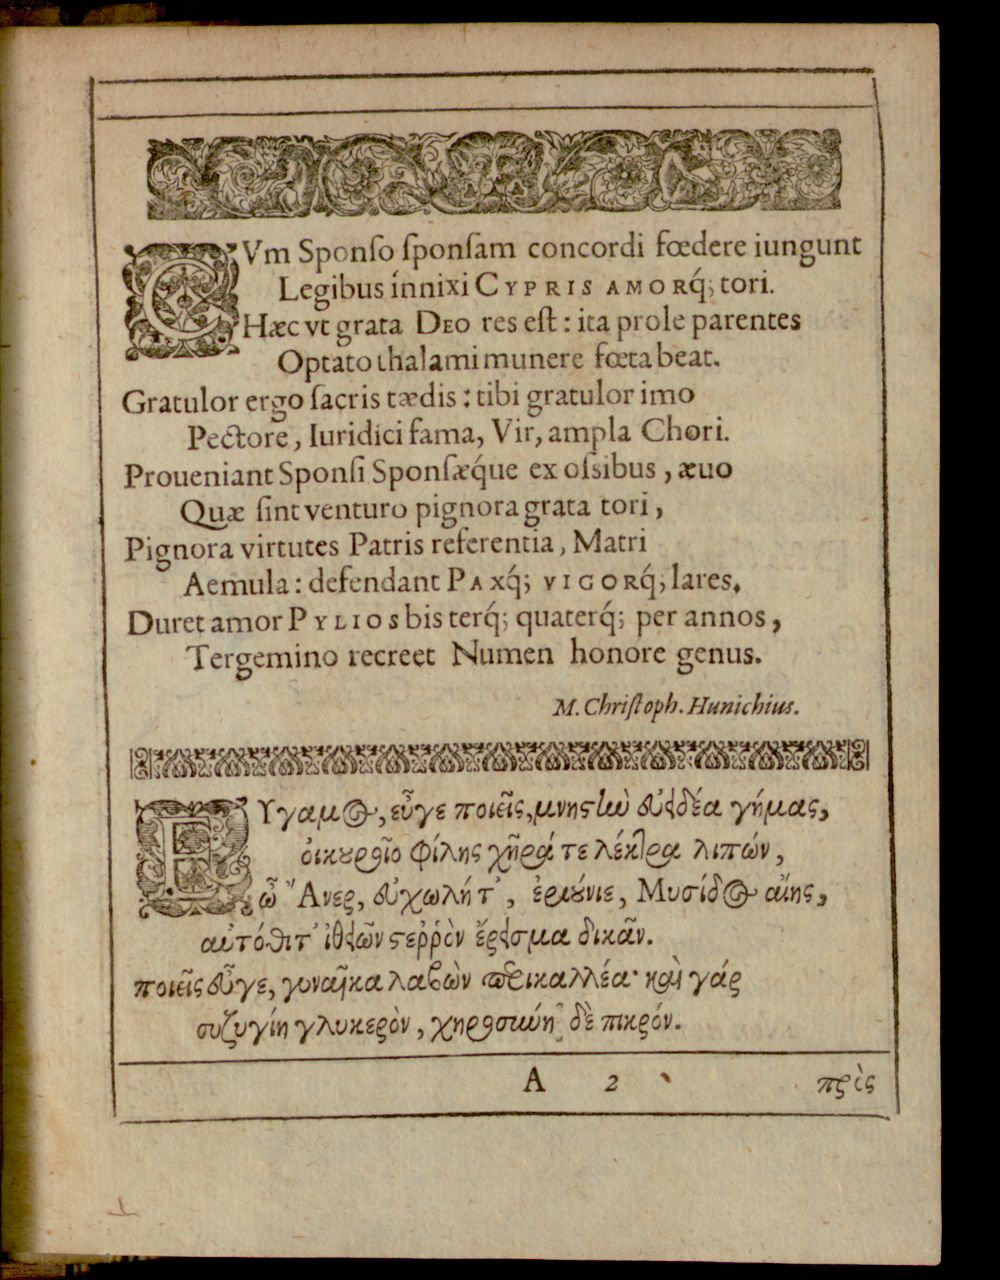 CVm Sponſo ſponſam concordi fœdere iungunt
Legibus innixi CYPRIS AMORq́; tori.
Hæc vt grata DEO res eſt: ita prole parentes
Optato thalami munere fœta beat.
Gratulor ergo ſacris tædis: tibi gratulor imo
Pectore, Iuridici fama, Vir, ampla Chori.
Proueniant Sponſi Sponſæq́ue ex oſsibus, æuo
Quæ ſint venturo pignora grata tori,
Pignora virtutes Patris referentia, Matri
Aemula: defendant PAXq́; VIGORq́; lares,
Duret amor PYLIOS bis terq́; quaterq́; per annos,
Tergemino recreet Numen honore genus.
M. Chriſtoph. Hunichius.
ΕΥγαμος, εὖγε ποιεῖς, γήμας,
φίλης χῆρά τε λέκτρα λιπών,
ὦ Ἄνερ, εὐχωλήτ', ἐριούνιε, Μυσίδος αἴης,
δικᾶν.
ποιεῖς εὖγε, γυναῖκα λαβὼν περικαλλέα· καὶ γάρ
συζυγίη γλυκερὸν, χηροσύνη δὲ πικρόν.
A 2 πρὶς